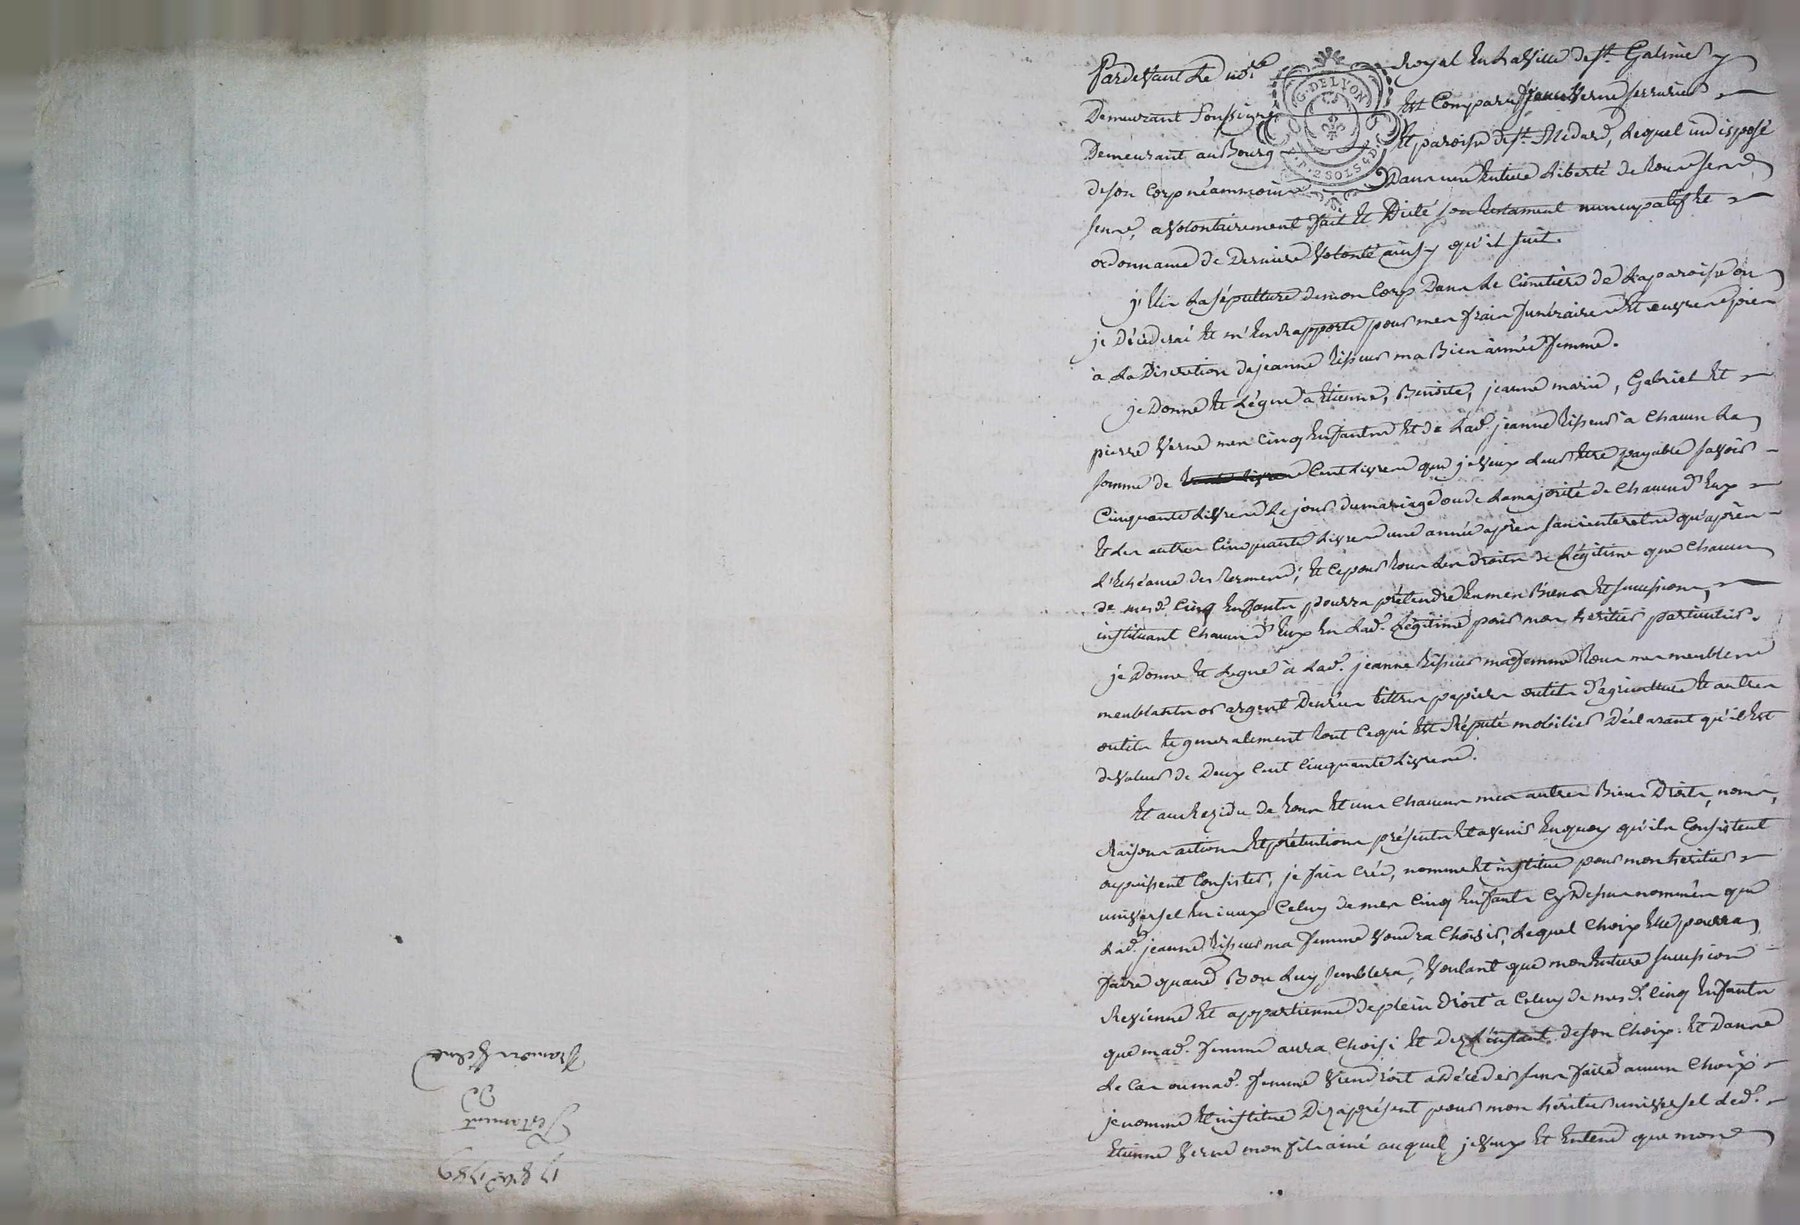 Pardevant Le no.re Royal En La Ville de st. Galmier y
Demeurant soussigné Est Comparu Verne serrurier
Demeurant au Bourg Et paroisse de st. Medard, Lequel indisposé
de son Corp néammoins Dans une Entiere Liberté de tous ses
sens, a volontairement fait Et Dicté son testament nuncupatif Et
ordonnance de Derniere volonté ainsy qu'il suit.
j'Elis La sépulture de mon Corp Dans Le Cimetière de La paroisse ou
je Décèderai Et m'En rapporte pour mes frais funéraires Et œuvres pies
à La Discretion de jeanne ma Bien aimée femme.
je Donne Et Lègue à Etienne, Benoite, jeanne marie, Gabriel Et
pierre Verne mes Cinq Enfants Et de Lad. jeanne à Chacun La
somme de Cent Livres que je veux Leur être payable savoir
Cinquante Livres Le jour du mariage ou de La majorité de Chacun d'Eux
Et Les autres Cinquante Livres une année après sans interets qu'après
L'Echéance des termes; Et Ce pour tous Les droits de Légitime que Chacun
de mesd. Cinq Enfants pourra prétendre En mes Biens Et succession,
instituant Chacun d'Eux En Lad. Légitime pour mon heritier particulier.
je Donne Et Legue à Lad. jeanne ma femme tous mes meubles
meublants or argent Denrées titres papiers outils d'agriculture Et autres
outils Et generalement tout Ce qui Est Réputé mobilier Déclarant qu'il Est
de valeur de Deux Cent Cinquante Livres.
Et au Rezidu de tous Et uns Chacuns mes autres Biens Droits, noms,
Raisons actions Et prétentions présents Et avenir En quoy qu'ils Consistent
ou puissent Consister, je fais Crée, nomme Et institue pour mon heritier
universel En iceux Celuy de mes Cinq Enfants Cy Dessus nommés que
Lad. jeanne ma femme voudra Choisir, Lequel Choix Elle pourra
faire quand Bon Luy semblera, Voulant que mon Entiere succession
Revienne Et appartienne de plein Droit à Celuy de mes d. Cinq Enfants
que mad. femme aura Choisi Et dez L'instant de son Choix. Et Dans
Le Cas ou mad. femme viendroit a décéder sans faire aucun Choix
je nomme Et institue Dez aprésent pour mon héritier universel led.
Etienne Verne mon fils ainé auquel je veux Et Entend que mon
17 8bre 1789
Testament
Verne